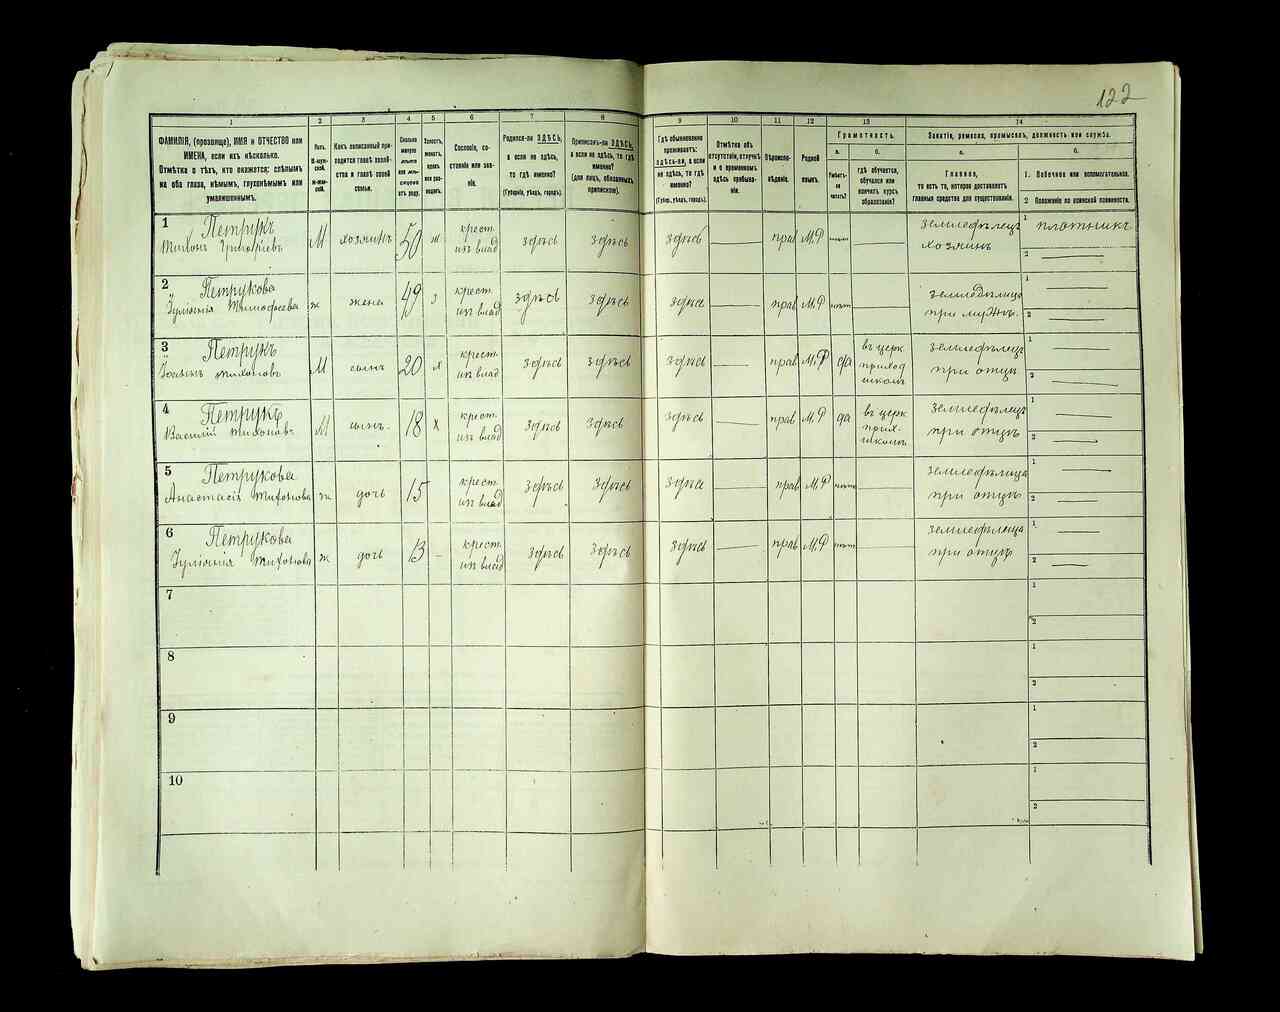 122
1 2 3 4 5 6 7 8 9 10 11 12 13 14
ФАМИЛІЯ, (прозвище), ИМЯ и ОТЧЕСТВО или
ИМЕНА, если ихъ нѣсколько.
Отмѣтка о тѣхъ, кто окажется: слѣпымъ
на оба глаза, нѣмымъ, глухонѣмымъ или
умалишеннымъ.
Полъ
М-муж-
ской.
Ж-жен-
скій.
Какъ записанный при-
ходится главѣ хозяй-
ства и главѣ своей
семьи.
Сколько
минуло
лѣтъ
или мѣ-
сяцевъ
отъ роду.
Холостъ,
женатъ,
вдовъ
или раз-
веденъ.
Сословіе, со-
стояніе или зва-
ніе.
Родился-ли ЗДѢСЬ,
а если не здѣсь,
то гдѣ именно?
(Губернія, уѣздъ, городъ).
Приписанъ-ли ЗДѢСЬ,
а если не здѣсь, то гдѣ
именно?
(для лицъ, обязанныхъ
припискою).
Гдѣ обыкновенно
проживаетъ:
здѣсь-ли, а если
не здѣсь, то гдѣ
именно?
(Губер., уѣздъ, городъ).
Отмѣтка объ
отсутствіи, отлучкѣ
и о временномъ
здѣсь пребыва-
ніи.
Вѣроиспо-
вѣданіе.
Родной
языкъ.
Грамотность.
а.
Умѣетъ-
ли
читать?
б.
гдѣ обучается,
обучался или
кончилъ курсъ
образованія?
Занятіе, ремесло, промыселъ, должность или служба.
а.
Главное,
то есть то, которое доставляетъ
главныя средства для существованія.
б.
1. Побочное или вспомогательное.
2 Положеніе по воинской повинности.
1 Петрукъ
Тихонъ Григорьевъ М хозяинъ 50 ж крест. изъ влад здѣсь здѣсь здѣсь прав М.Р нѣтъ земледѣлецъ хозяинъ 1 плотникъ
2
2 Петрукова
Іуліянія Тимофеева ж жена 49 з крест. изъ влад здѣсь здѣсь здѣсь прав М.Р нѣтъ земледѣлица при мужѣ 1
2
3 Петрукъ
Іоаннъ Тихоновъ М сынъ 20 х крест. изъ влад здѣсь здѣсь здѣсь прав М.Р да въ церк. приход школѣ земледѣлецъ при отцѣ 1
2
4 Петрукъ
Василій Тихоновъ М сынъ 18 х крест. изъ влад здѣсь здѣсь здѣсь прав М.Р да въ церк прих. школѣ земледѣлецъ при отцѣ 1
2
5 Петрукова
Анастасія Тихонова ж дочь 15 крест. изъ влад здѣсь здѣсь здѣсь прав М.Р нѣтъ земледѣлица при отцѣ 1
2
6 Петрукова
Іуліянія Тихонова ж дочь 13 крест. изъ влад здѣсь здѣсь здѣсь прав М.Р нѣтъ земледѣлица при отцѣ 1
2
7 1
2
8 1
2
9 1
2
10 1
2